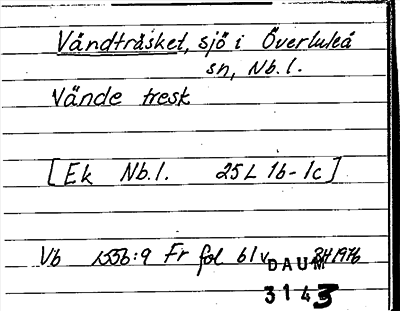 Vändträsket, sjö i Överluleå
sn, Nb. l.
Vände tresk
[Ek Nb. l. 25L 1b-1c]
Vb 1556:9 Fr fol 61v DAUM 1976
3143